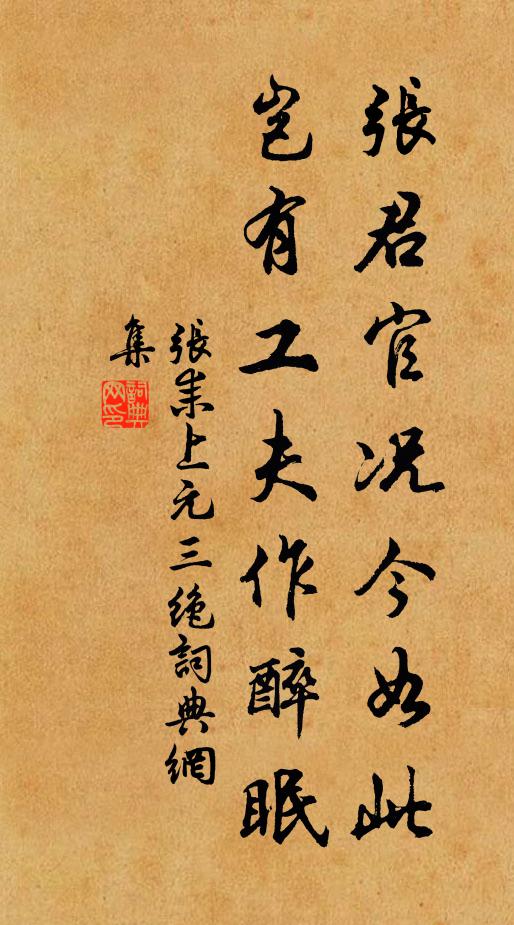 張君官况今如此
豈有工夫作醉眠
張耒上元三绝詞典網
集
詞典
网印